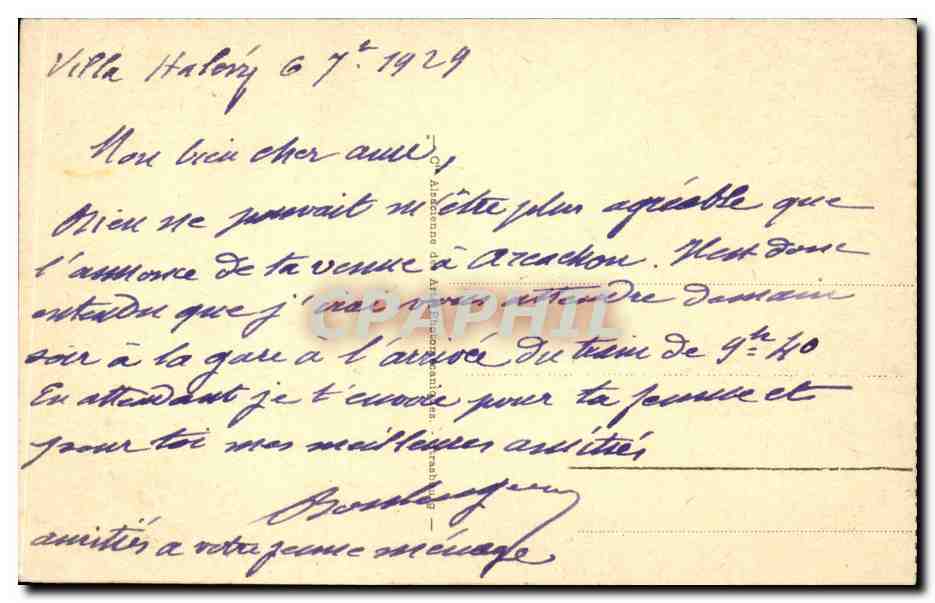 Villa Halévy 6 7re 1929
Mon bien cher ami,
Rien ne pouvait m'être plus agréable que
l'annonce de ta venue à Arcachon. Il est donc
entendu que j'irai vous attendre demain
soir à la gare à l'arrivée du train de 9h 40
En attendant je t'envoie pour ta femme et
pour toi mes meilleures amitiés
amitiés à votre jeune ménage
Cie Alsacienne des Arts Photomécaniques, Strasbourg
CPAPHIL